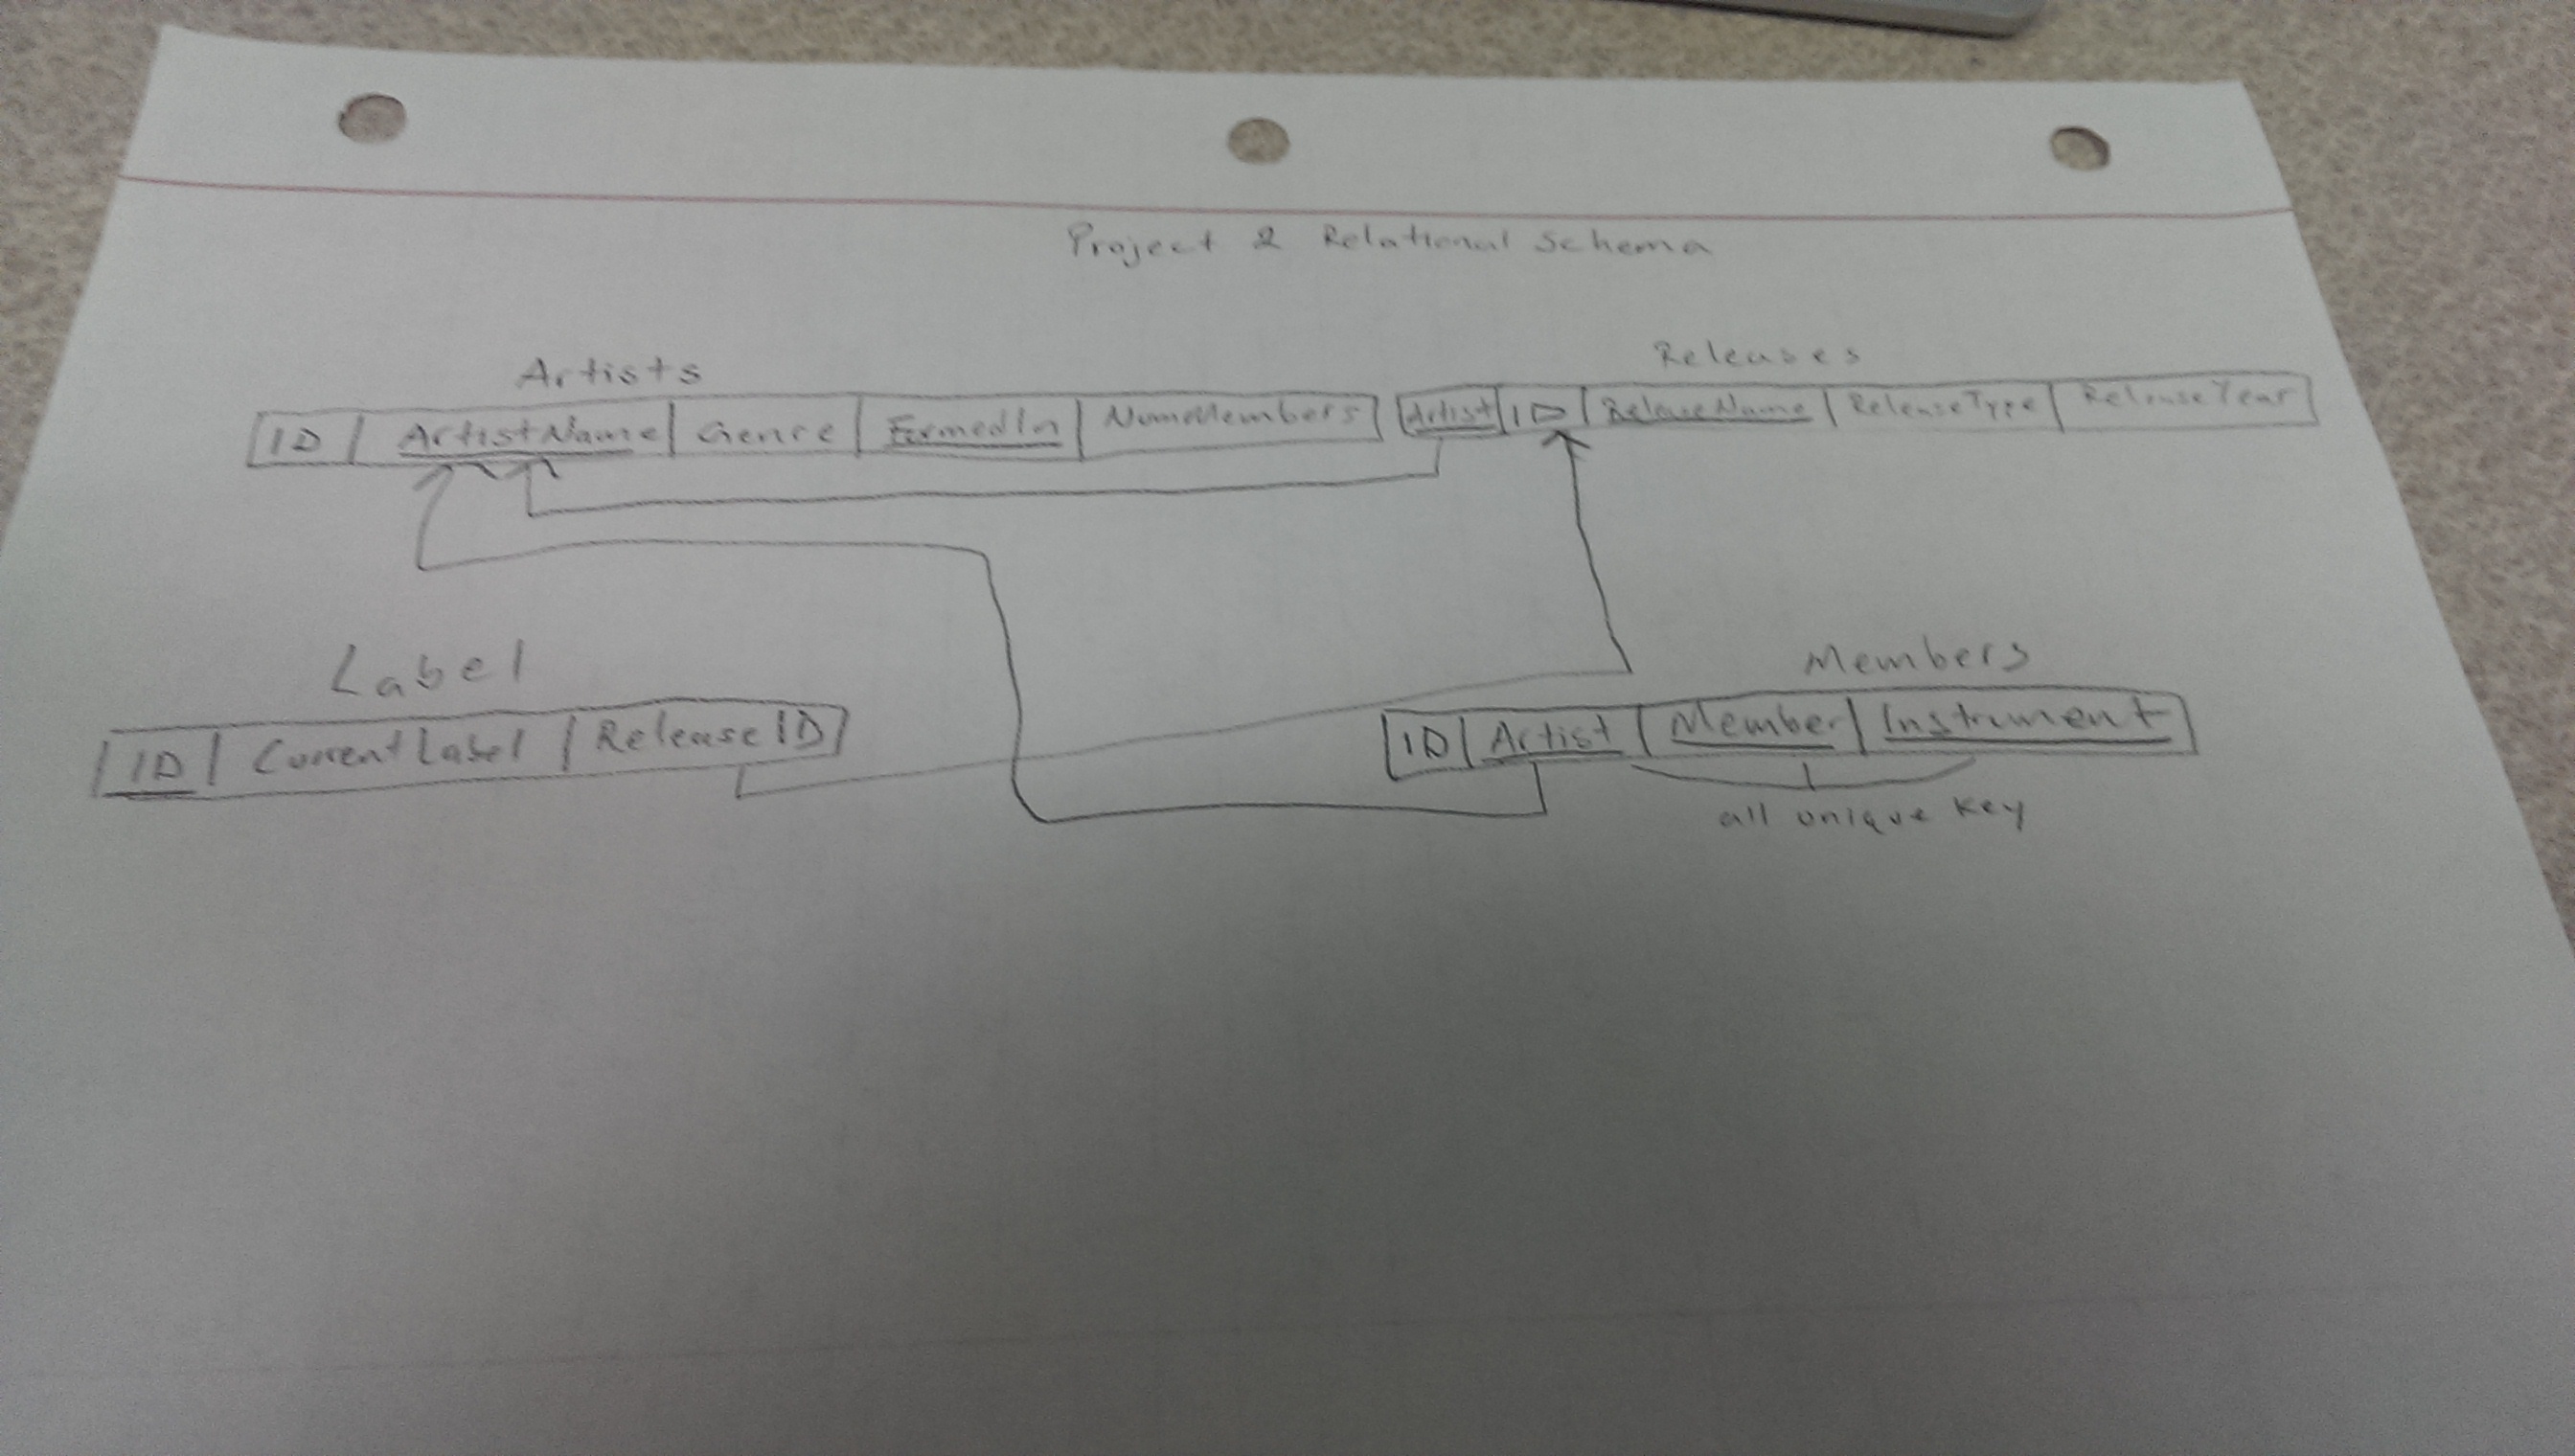 Project 2 Relational Schema
Artists
ID ArtistName Genre FormedIn NumMembers
Releases
Artist ID ReleaseName ReleaseType ReleaseYear
Label
ID CurrentLabel ReleaseID
Members
ID Artist Member Instrument
all unique key